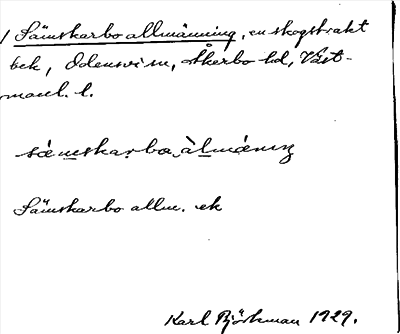 1 Sämskarbo allmänning, en skogstrakt
bek, Odensvi sn, Åkerbo hd, Väst-
manl. l.
Sämskarbo allm. ek
Karl Björkman 1929.